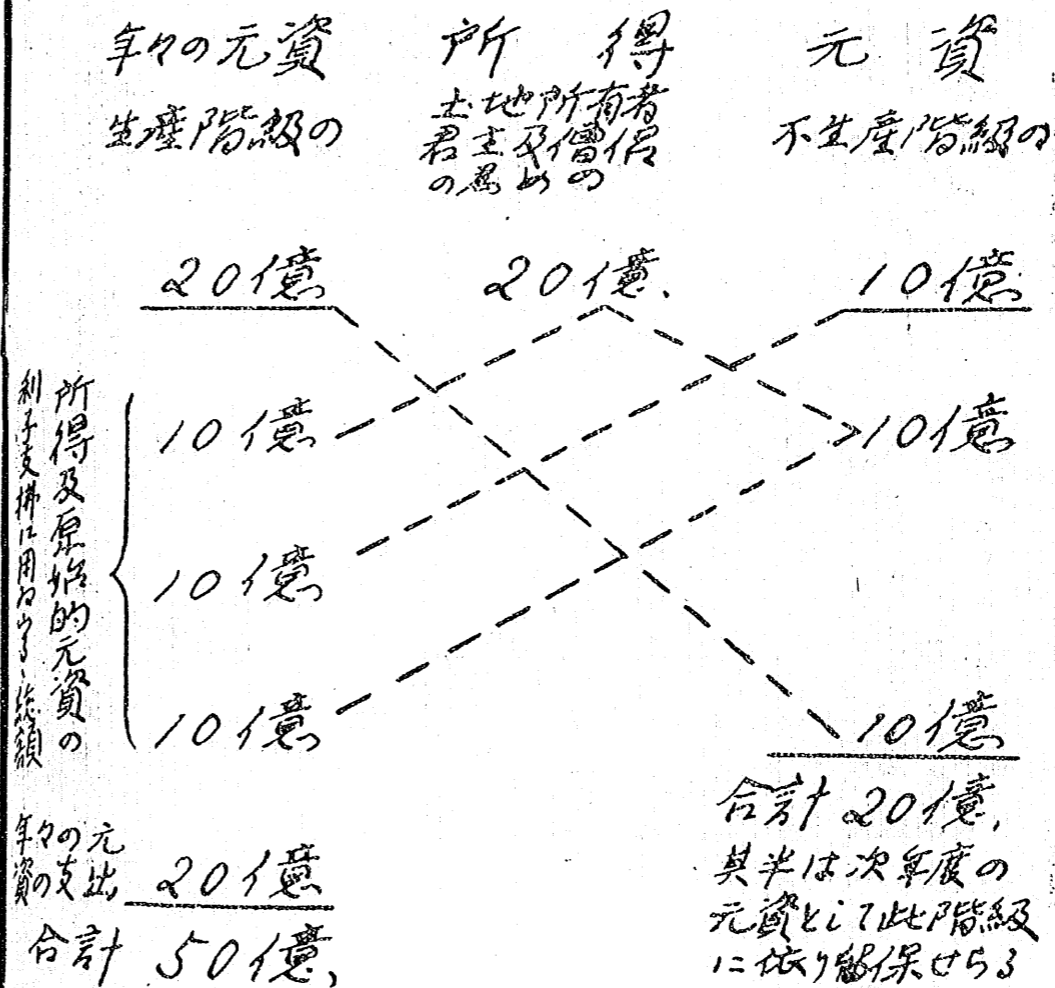 年々の元資
生産階級の
所得
土地所有者
君主及僧侶
の為めの
元資
不生産階級の
20億
20億、
10億
所得及原始的元資の
利子支拂に用ゐらるゝ総額
10億
10億
10億
10億
10億
年々の元
資の支出
20億
合計 50億、
合計 20億、
其半は次年度の
元資として此階級
に依り留保せらる